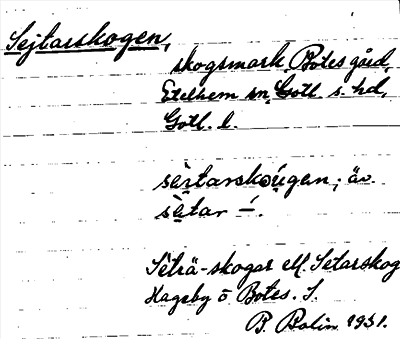 Sejtarskogen,
skogsmark, Botes gård,
Etelhem sn, Gotl. s. hd,
Gotl. l.
sèi̯tarskoúgen; äv.
sètar –́.
Seträ-skogar ell. Setarskog
Hageby o Botes. S.
P. Bolin 1931.